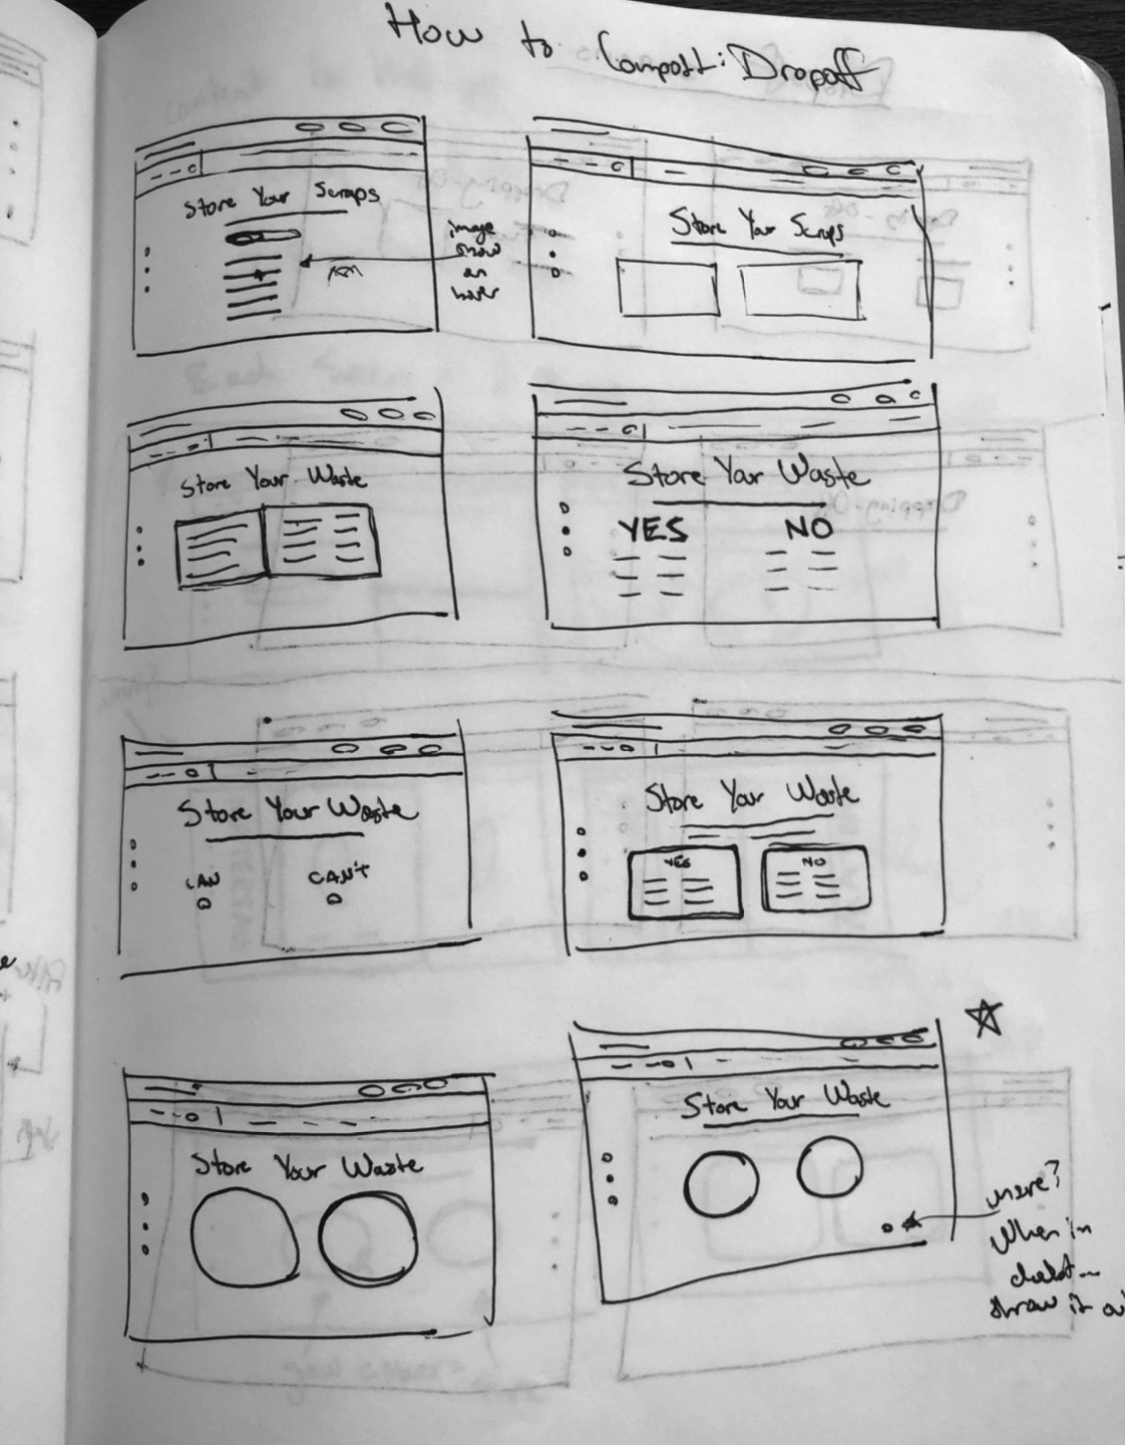 How to Compost: Dropoff
Store Your Scraps
image
show
on
hover
Store Your Scraps
Store Your Waste
Store Your Waste
YES NO
Store Your Waste
CAN CAN'T
Store Your Waste
YES NO
Store Your Waste
Store Your Waste
more?
When in
doubt...
throw it ou